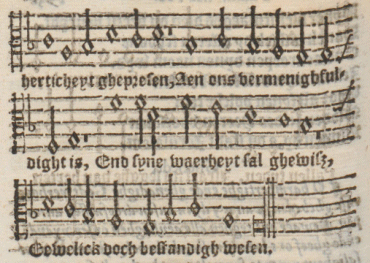 herticheyt ghepresen, Aen ons vermenighful-
dight is, End syne waerheyt sal ghewisz,
Eewelick doch bestandigh wesen.